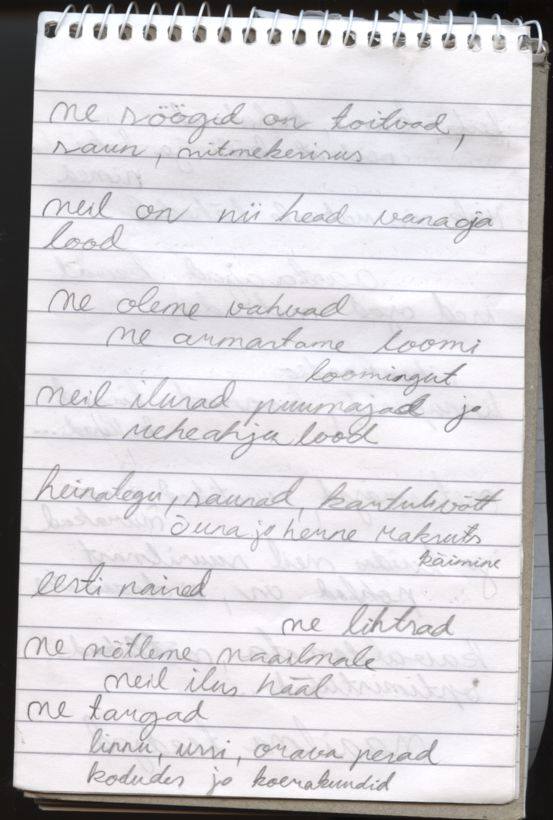 me söögid on toitvad,
saun, mitmekesisus
meil on nii head vanaaja
lood
me oleme vahvad
me armastame loomi
loomingut
meil ilusad puumajad ja
rehealuse lood
heinategu, saunad, kartulivõtt
õuna ja herne raksus
käimine
eesti naised
me lihtsad
me mõtleme maailmale
meil ilus hääl
me targad
linnu, ussi, orava pesad
kodudes ja koerakuudid